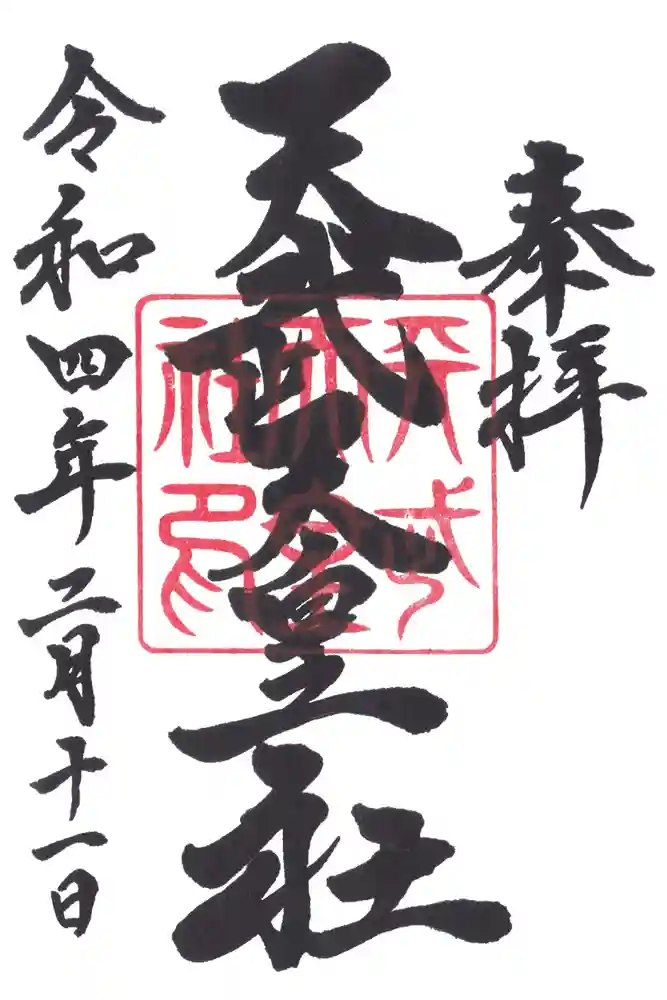 奉拝
天武天皇社
令和四年二月十一日
天武
天皇
社印